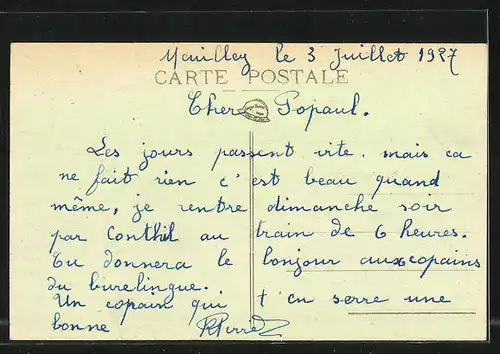 le 3 Juillet 1927
CARTE POSTALE
Cher Popaul.
Les jours passent vite. mais ca
ne fait rien c'est beau quand
même, je rentre dimanche soir
par Conthil au train de 6 heures.
Tu donnera le bonjour aux copains
du
Un copain qui t'en serre une
bonne